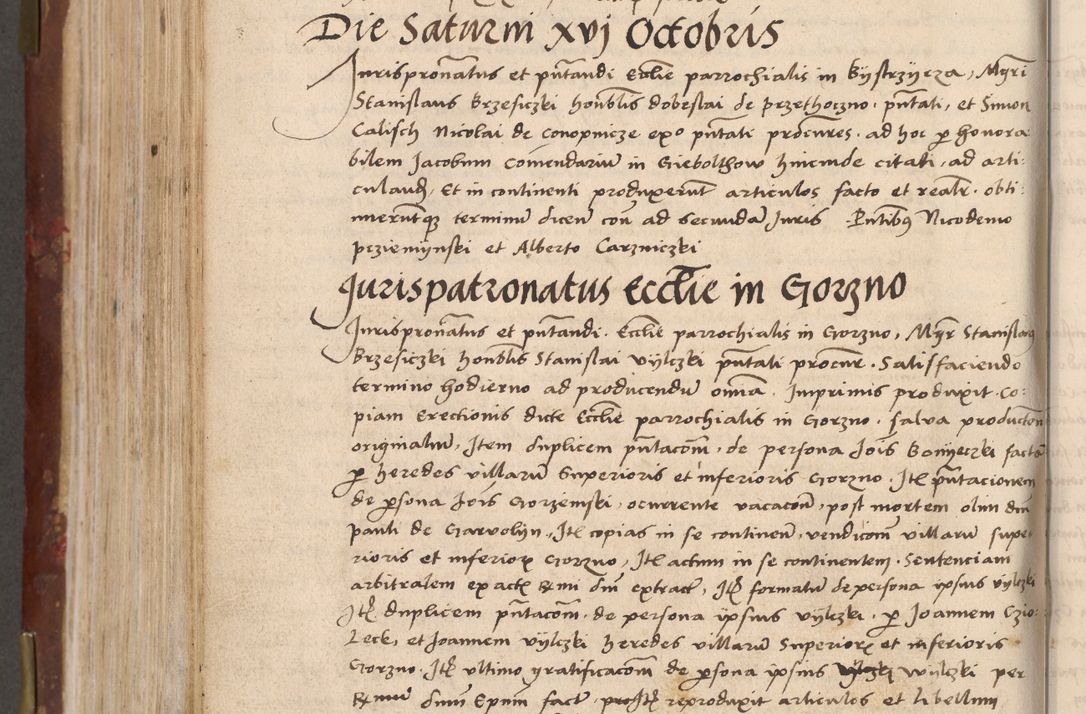 Die Saturni xvj Octobris
Jurispronatus et pntandi Ecclie parrochialis in Bystrzycza, Mgri
Stanislaus Brzesiczki honblis dobeslai de przethoczno. pntati, et Simon
Calisch Nicolai de Conopnicze exo pntati procures. ad hoc p honora
bilem Jacobum Comendariu in Giebolthow hincinde citati, ad arti:
culand, Et in continenti produxerunt articulos facto et realr. obti:
nueruntqz terminu dicen con ad secunda Juris Pntibus Nicodemo
przieminski et Alberto Carzniczki
Jurispatronatus Ecclie in Gorzno
Jurispronatus et pntandi. Ecclie parrochialis in Gorzno, Mgr Stanislaus
Brzesiczki honblis Stanislai vylczki pntati procur. Satisfaciendo
termino hodierno ad producendu omia. Imprimis produxit. Co:
piam Erectionis dicte Ecclie parrochialis in Gorzno. salva producton
originaliu, Item duplicem pntacom, de persona Jois Bonyeczki facta
p heredes villaru Superioris et inferioris Gorzno. Itl pntacionem
de psona Jois Gorzenski, ocurrente vacacon, post mortem olim dni
pauli de Garvolyn, Itl copias in se continen, vendicom villaru supe
rioris et inferiorx Gorzno, Itl actum in se continentem. Sententiam
arbitralem ex actx Rmi dni extract, Itl formatu de persona ipsius vylczki
Itl duplicem pntacom. de persona ipsius vylczki. p Joannem Czio:
Leck, et Joannem vylczki heredes villaru Superiorx et inferioris
Gorzno. Itl ultimo gratificacom de psona ipsius wylczki per
Rmum dnum Epum fact reproduxit articulos et libellum